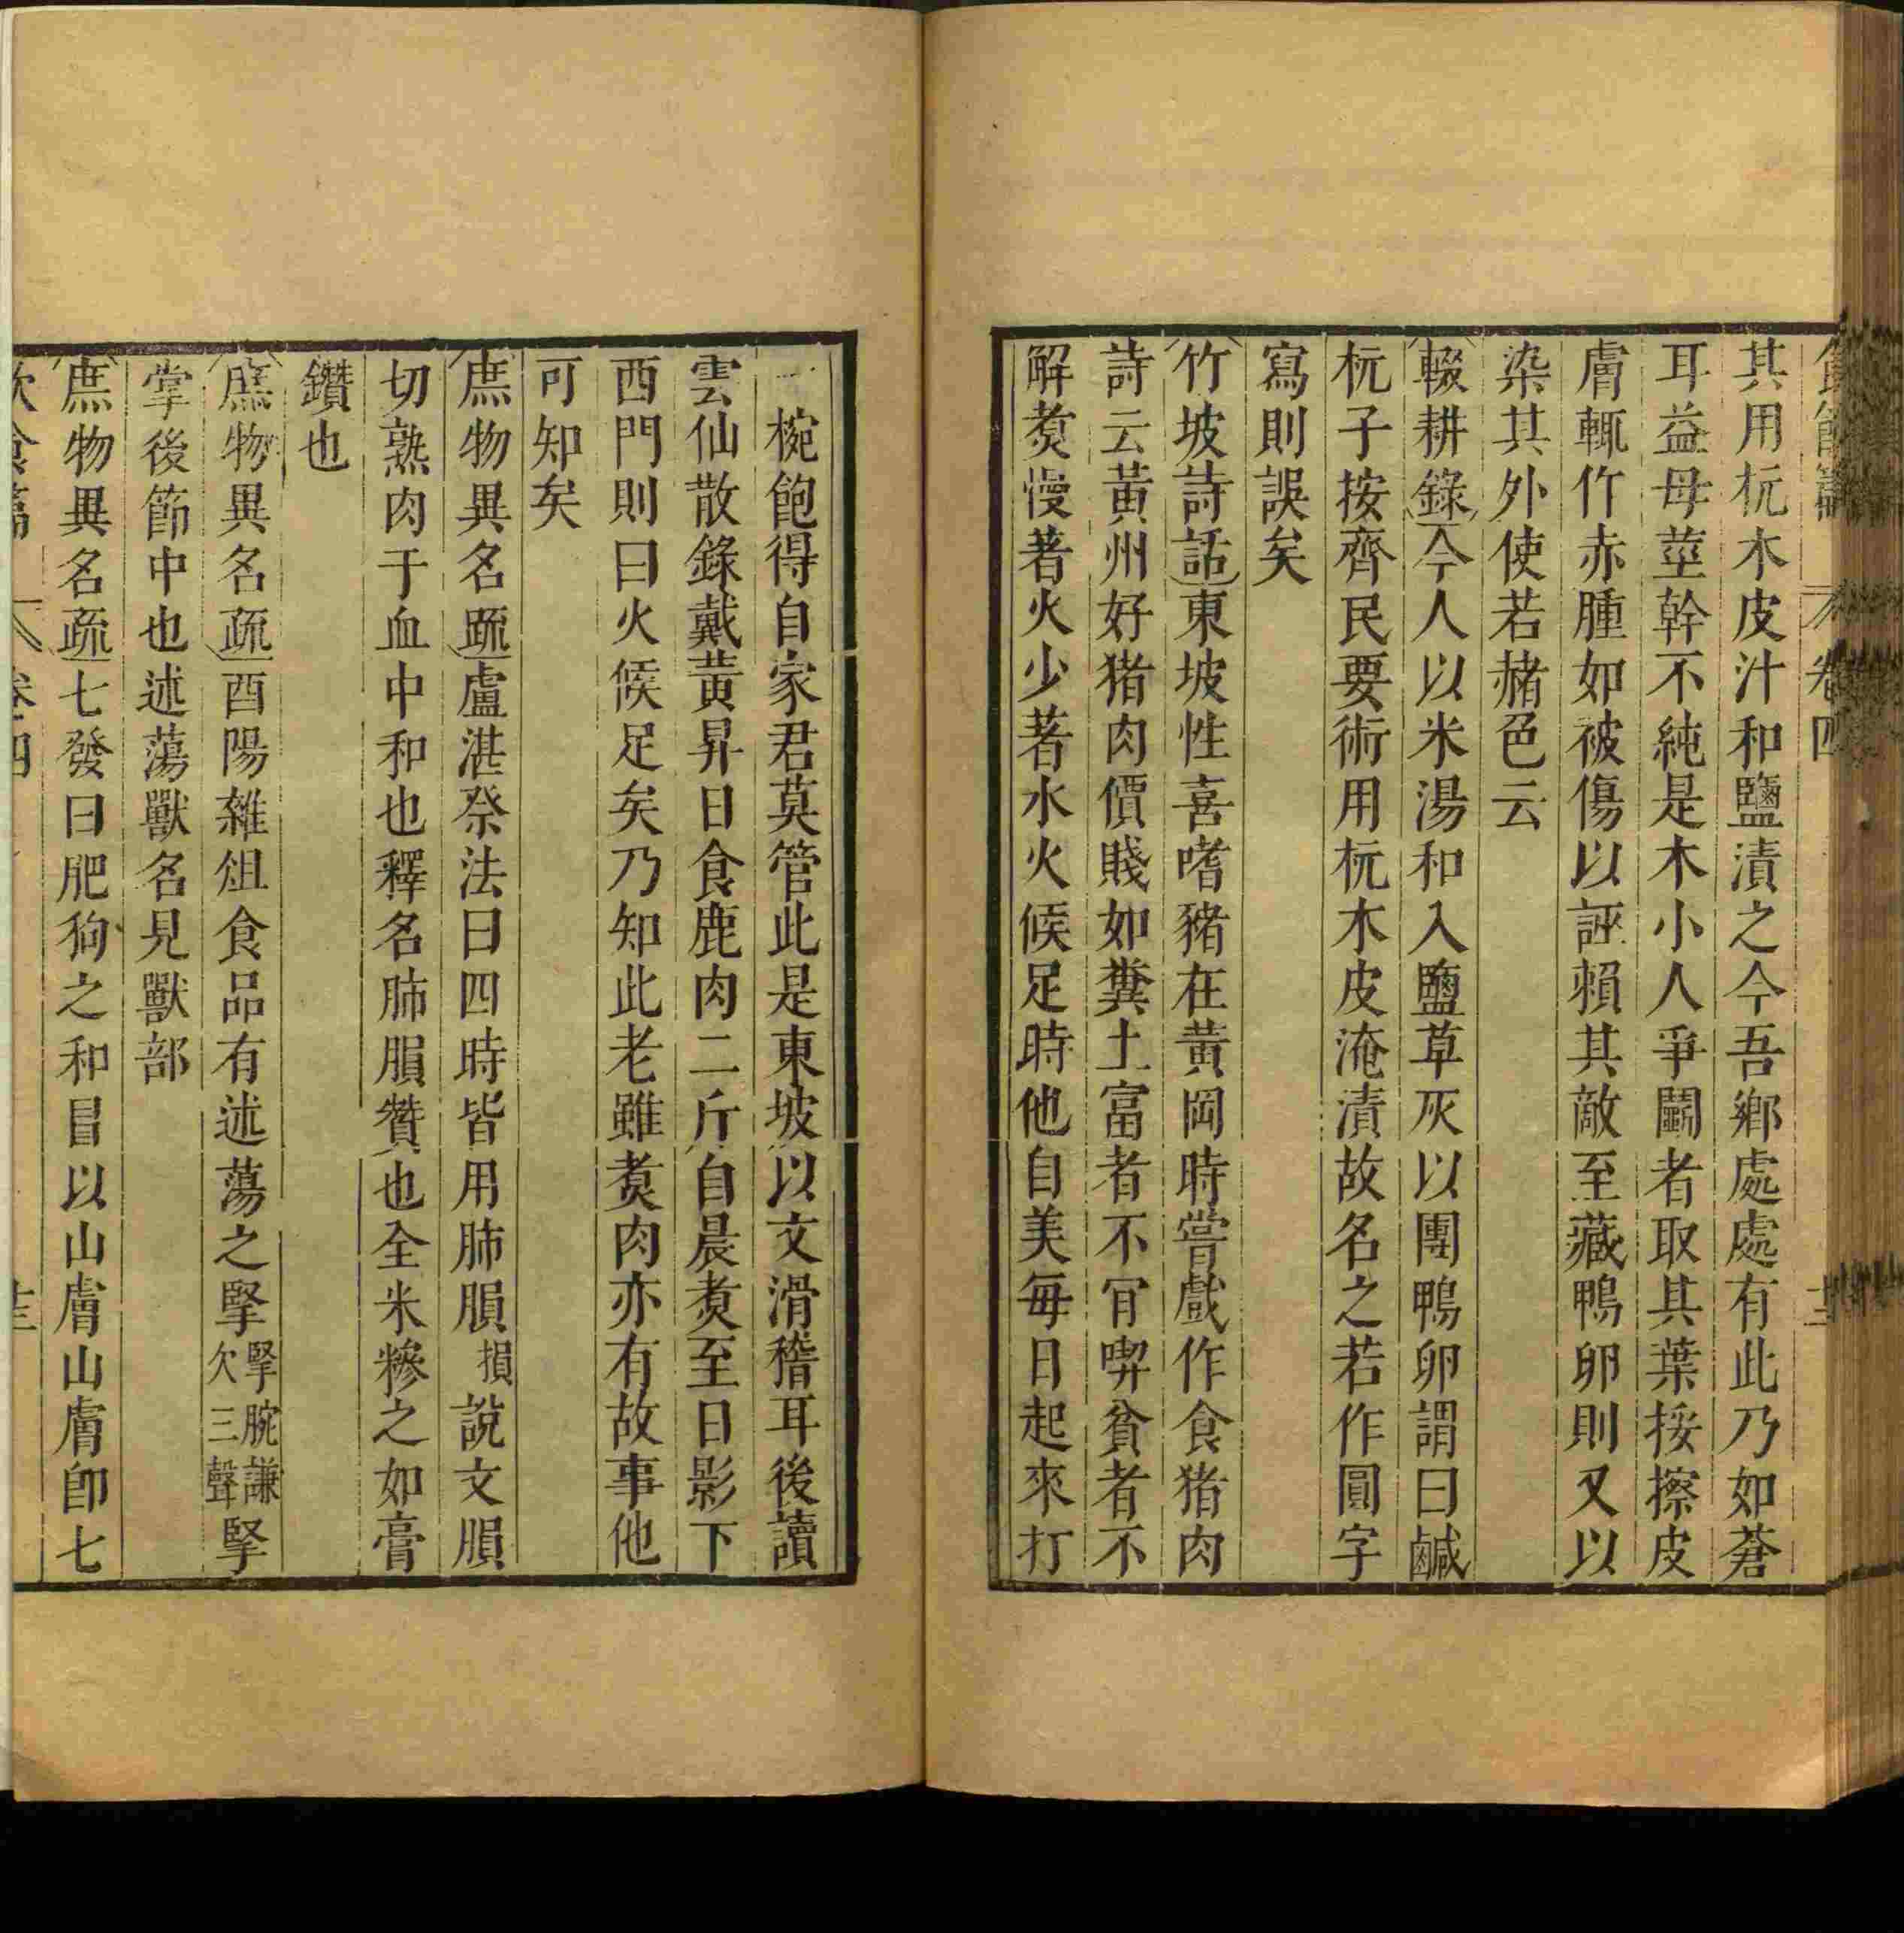 卷四
其用杬木皮汁和鹽漬之今吾鄉處處有此乃如蒼
耳益母莖幹不純是木小人爭鬭者取其葉挼擦皮
膚輒作赤腫如被傷以誣賴其敵至藏鴨卵則又以
染其外使若赭色云
輟耕錄今人以米湯和入鹽草灰以團鴨卵謂曰鹹
杬子按齊民要術用杬木皮淹漬故名之若作圓字
寫則誤矣
竹坡詩話東坡性喜嗜豬在黃岡時嘗戲作食猪肉
詩云黃州好猪肉價賤如糞土富者不肎喫貧者不
解煑慢著火少著水火候足時他自美每日起來打
一椀飽得自家君莫管此是東坡以文滑稽耳後讀
雲仙散錄戴黃昇日食鹿肉二斤自晨煑至日影下
西門則曰火候足矣乃知此老雖煑肉亦有故事他
可知矣
庶物異名䟽盧湛祭法曰四時皆用肺䐣損說文䐣
切熟肉于血中和也釋名肺䐣贊也全米糝之如膏
鑽也
庶物異名疏酉陽雜俎食品有述蕩之掔掔腕謙欠三聲掔
掌後節中也述蕩獸名見獸部
庶物異名疏七發曰肥狗之和冒以山膚山膚卽七
飲食篇 卷四 十三